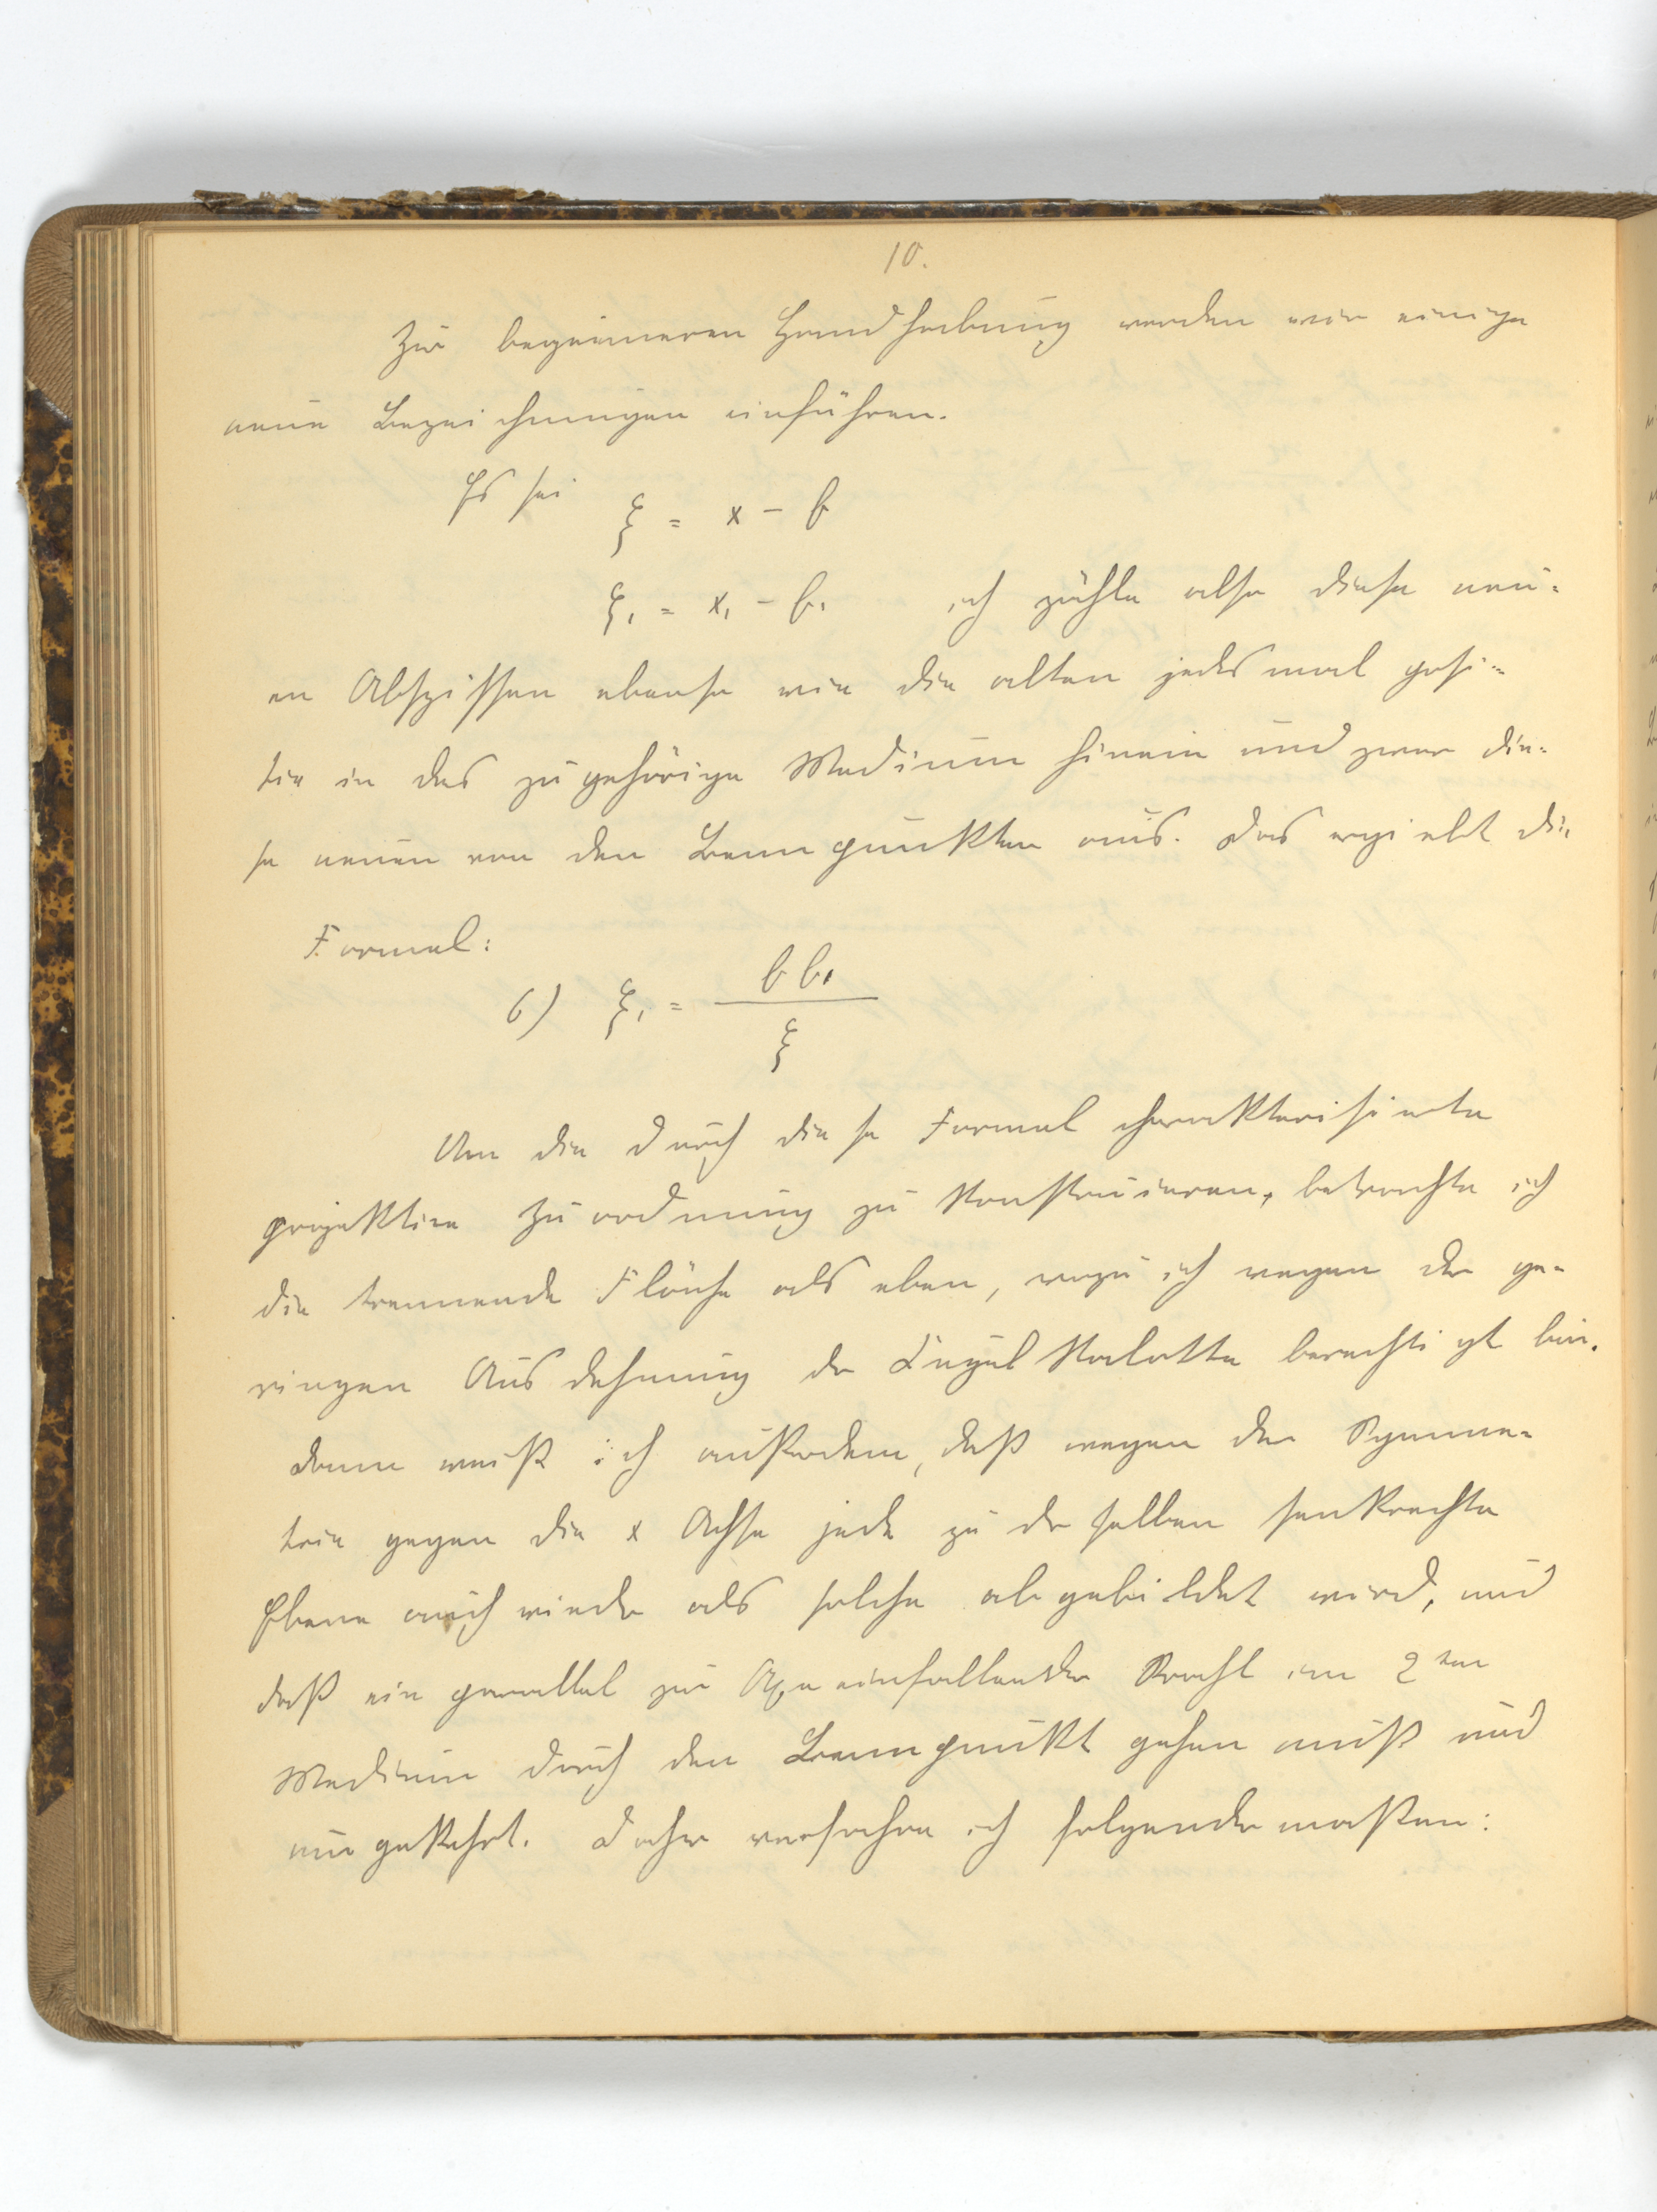 10.
Zur bequemeren Handhabung werden wir einige
neue Bezeichnungen einführen.
Es sei ξ = x - b
ξ₁ = x₁ - b₁ ich zähle also diese neu-
en Abszissen ebenso wie die alten jedesmal posi-
tiv in das zugehörige Medium hinein und zwar die-
se neuen von den Brennpunkten aus. Das ergiebt die
Formel:
6) ξ₁ = b b₁ / ξ
Um die durch diese Formel charakterisierte
projektive Zuordnung zu konstruieren, betrachte ich
die trennende Fläche als eben, wozu ich wegen der ge-
ringen Ausdehnung der Kugelkalotte berechtigt bin.
Dann weiß ich außerdem, daß wegen der Symme-
trie gegen die x Achse jede zu derselben senkrechte
Ebene auch wieder als solche abgebildet wird, und
daß ein parallel zur Axe einfallender Strahl im 2ten
Medium durch den Brennpunkt gehen muß und
umgekehrt. Daher verfahre ich folgendermaßen: